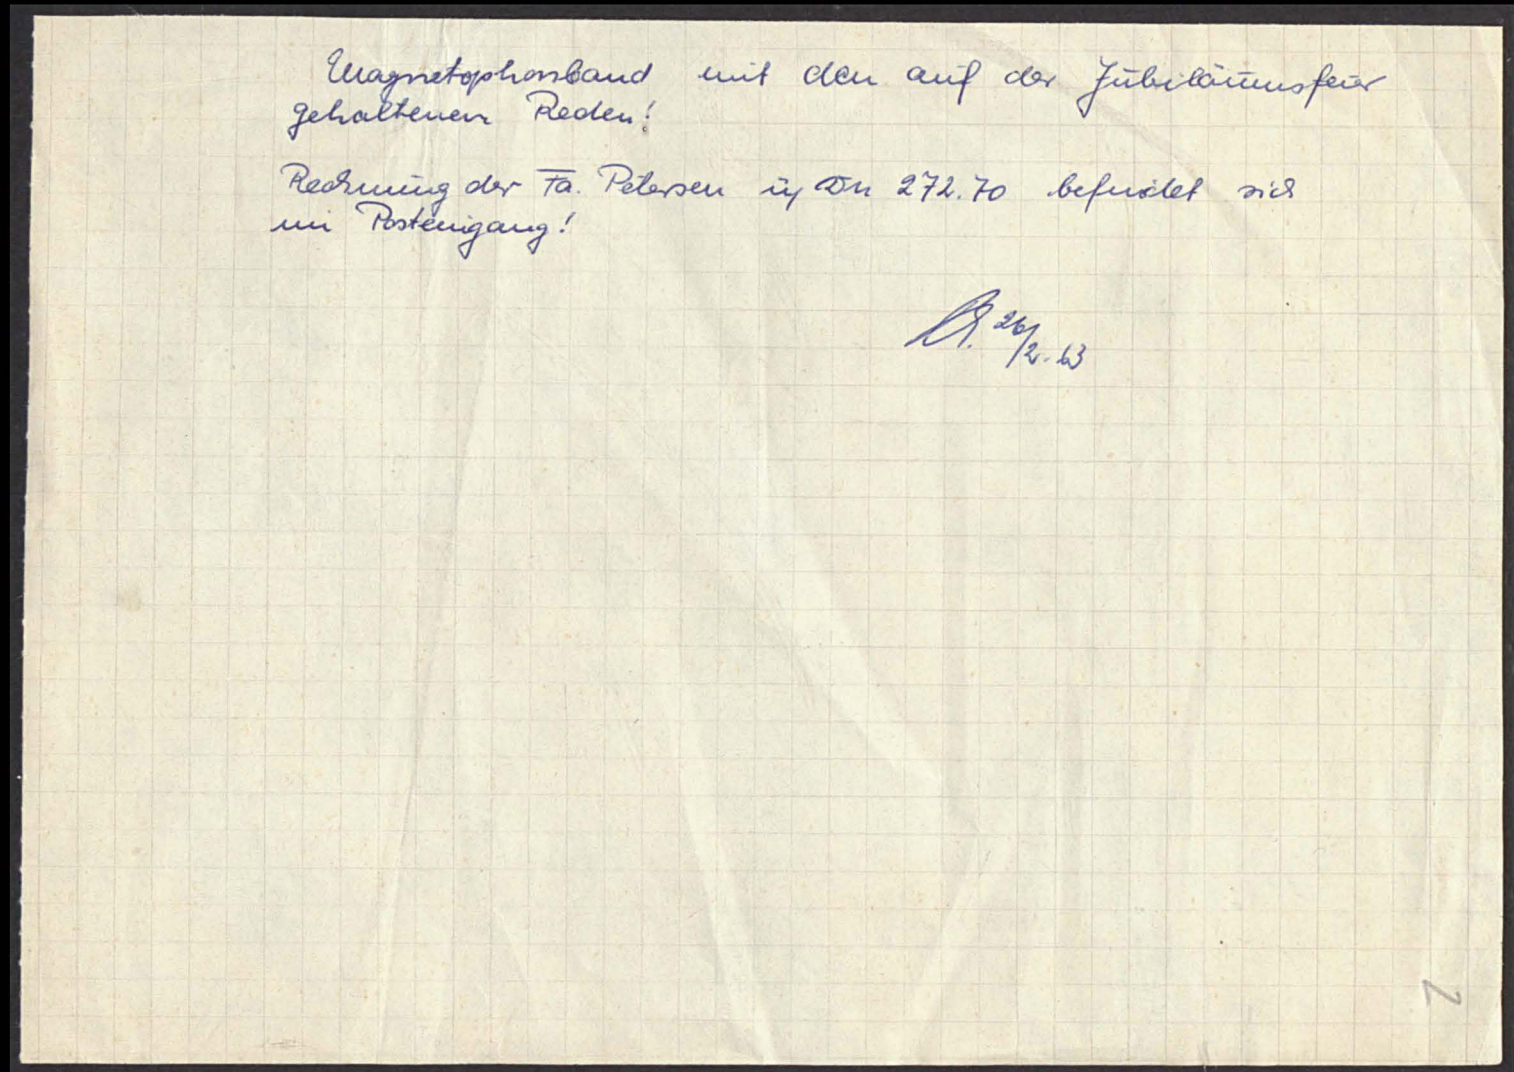 Magnetophonband mit den auf der Jubiläumsfeier
gehaltenen Reden!
Rechnung der Fa. Petersen üb. DM 272.70 befindet sich
im Posteingang!
26/2.63
2